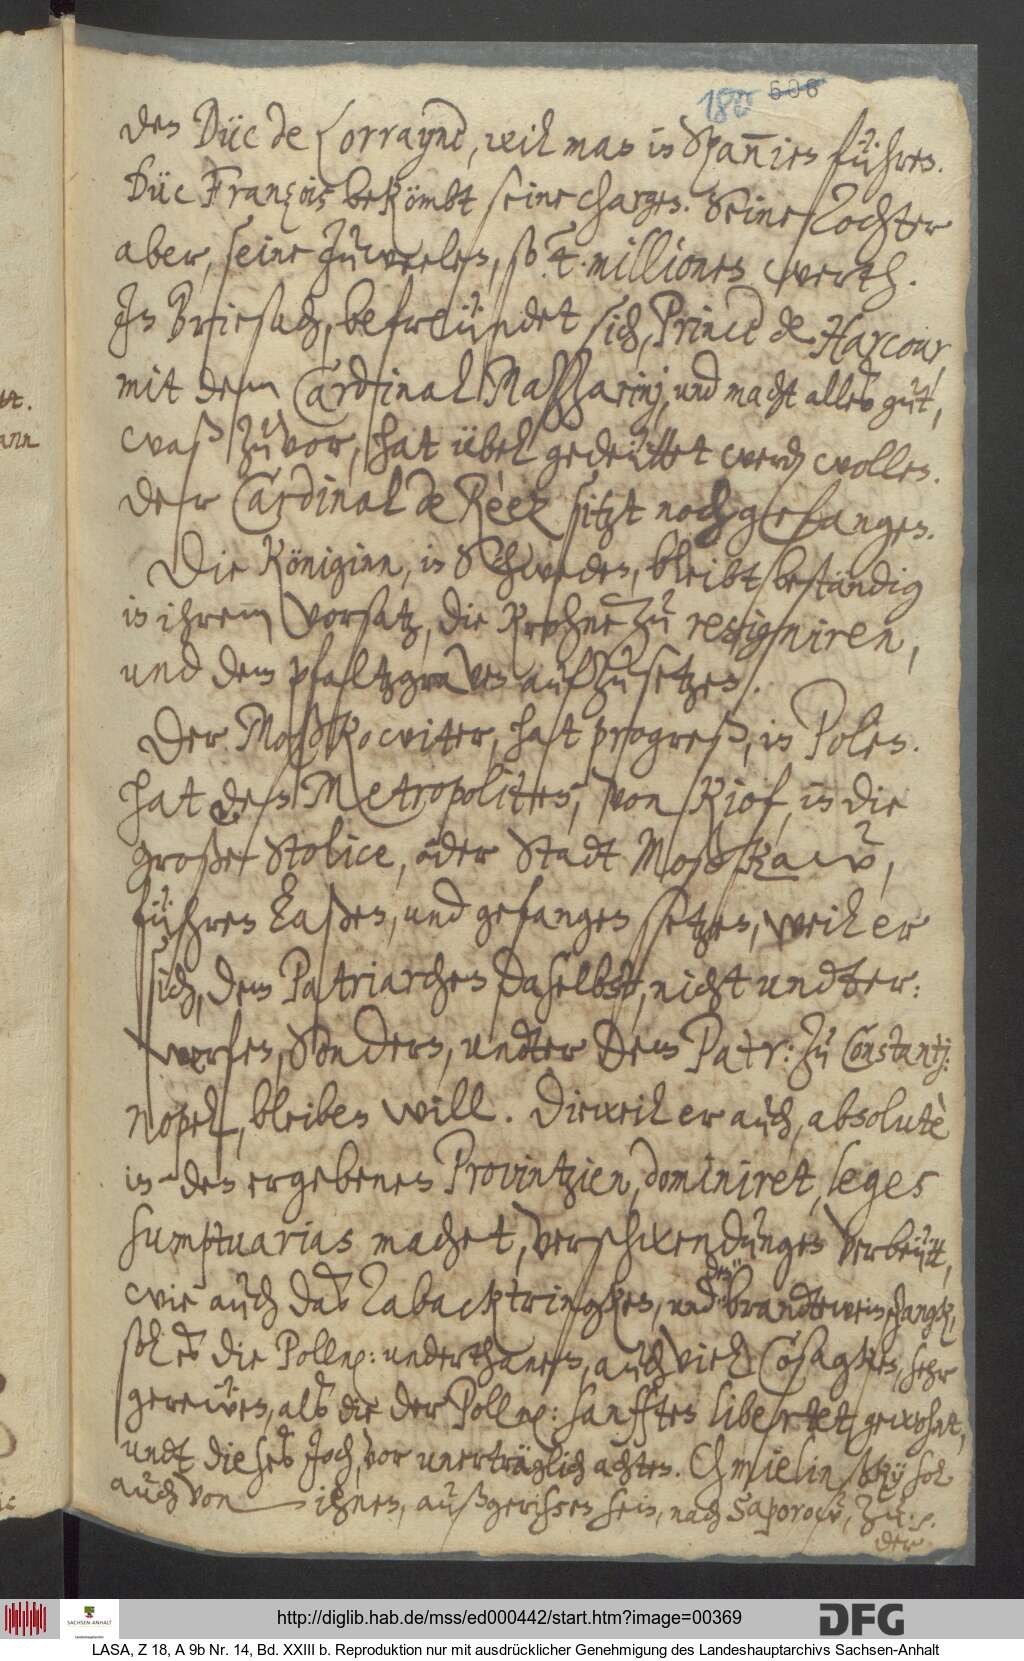 180 608
den Düc de Lorrayne, will man in Spannien führen.
Düc François bekömbt seine charges. Seine Tochter
aber, seine Jüwelen, so 4 millionen werth.
In Briesach, befreündet sich, Prince de Harcour,
mit dem Cardinal Massarinj, und macht alles güt,
waß zuvor, hat übel gedeüttet werden wollen.
der Cardinal de Réez sitzt noch gefangen.
Die Königinn, in Schweden, bleibt beständig
in ihrem vorsatz, die Krohne zu resigniren,
und dem pfaltzgraven aufzusetzen.
Der Moßkowiter, hat progreß, in Polen.
hat den Metropoliten, von Kiof, in die
große Stolice, oder Stadt Moßkaw,
führen laßen, und gefangen setzen, weil er
sich, dem Patriarchen daselbst, nicht undter-
werfen, sondern, undter dem Patr: zu Constantj:
nopel, bleiben will. Dieweil er auch, absolutè
in den ergebenen Provintzien, dominiret, leges
sumptuarias machet, verschwendungen verbeütt,
wie auch das Taback trincken, und den brandtwein schangk,
sol es die Polln: underthanen, auch viel Cosagken, sehr
gerewen, als die der Polln: sanfften libertet gewohnt,
undt dieses Joch, vor unerträglich achten. Chmielinßky sol
auch von ihnen, außgerissen sein, nach Saporow, zu: p.
der
http://diglib.hab.de/mss/ed000442/start.htm?image=00369
SACHSEN-ANHALT
DFG
LASA, Z 18, A 9b Nr. 14, Bd. XXIII b. Reproduktion nur mit ausdrücklicher Genehmigung des Landeshauptarchivs Sachsen-Anhalt